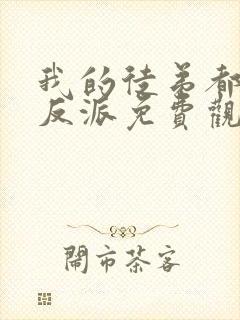 我的徒弟都
反派免費觀
鬧市茶客